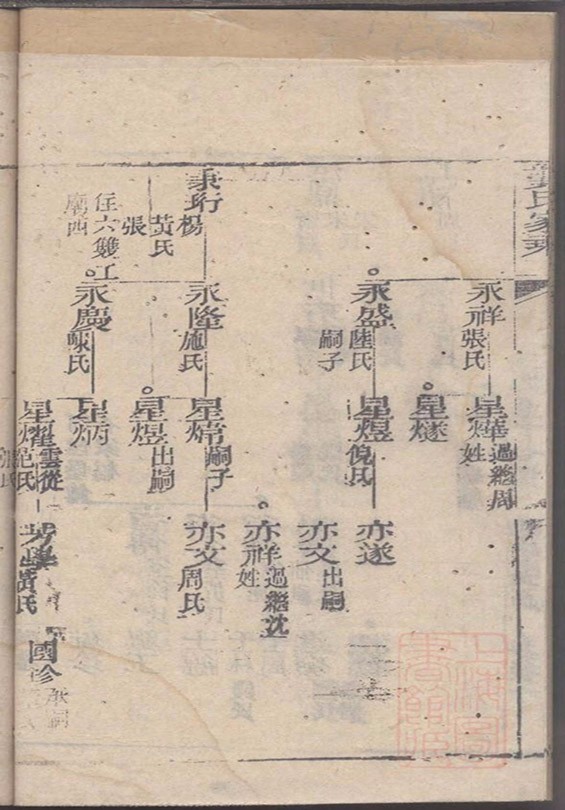 氏家乘
永祥 張氏
永盛 陸氏
嗣子
秉珩 楊
黃氏
張
住六雙工
廟西
永隆 施氏
永慶 陳氏
星燁 過繼周
姓
星燧
星煜 倪氏
星煒 嗣子
星煜 出嗣
星炳
星燿 雲從
范氏
亦遂
亦文 出嗣
亦祥 過繼沈
姓
亦文 周氏
黃氏
國珍 承嗣